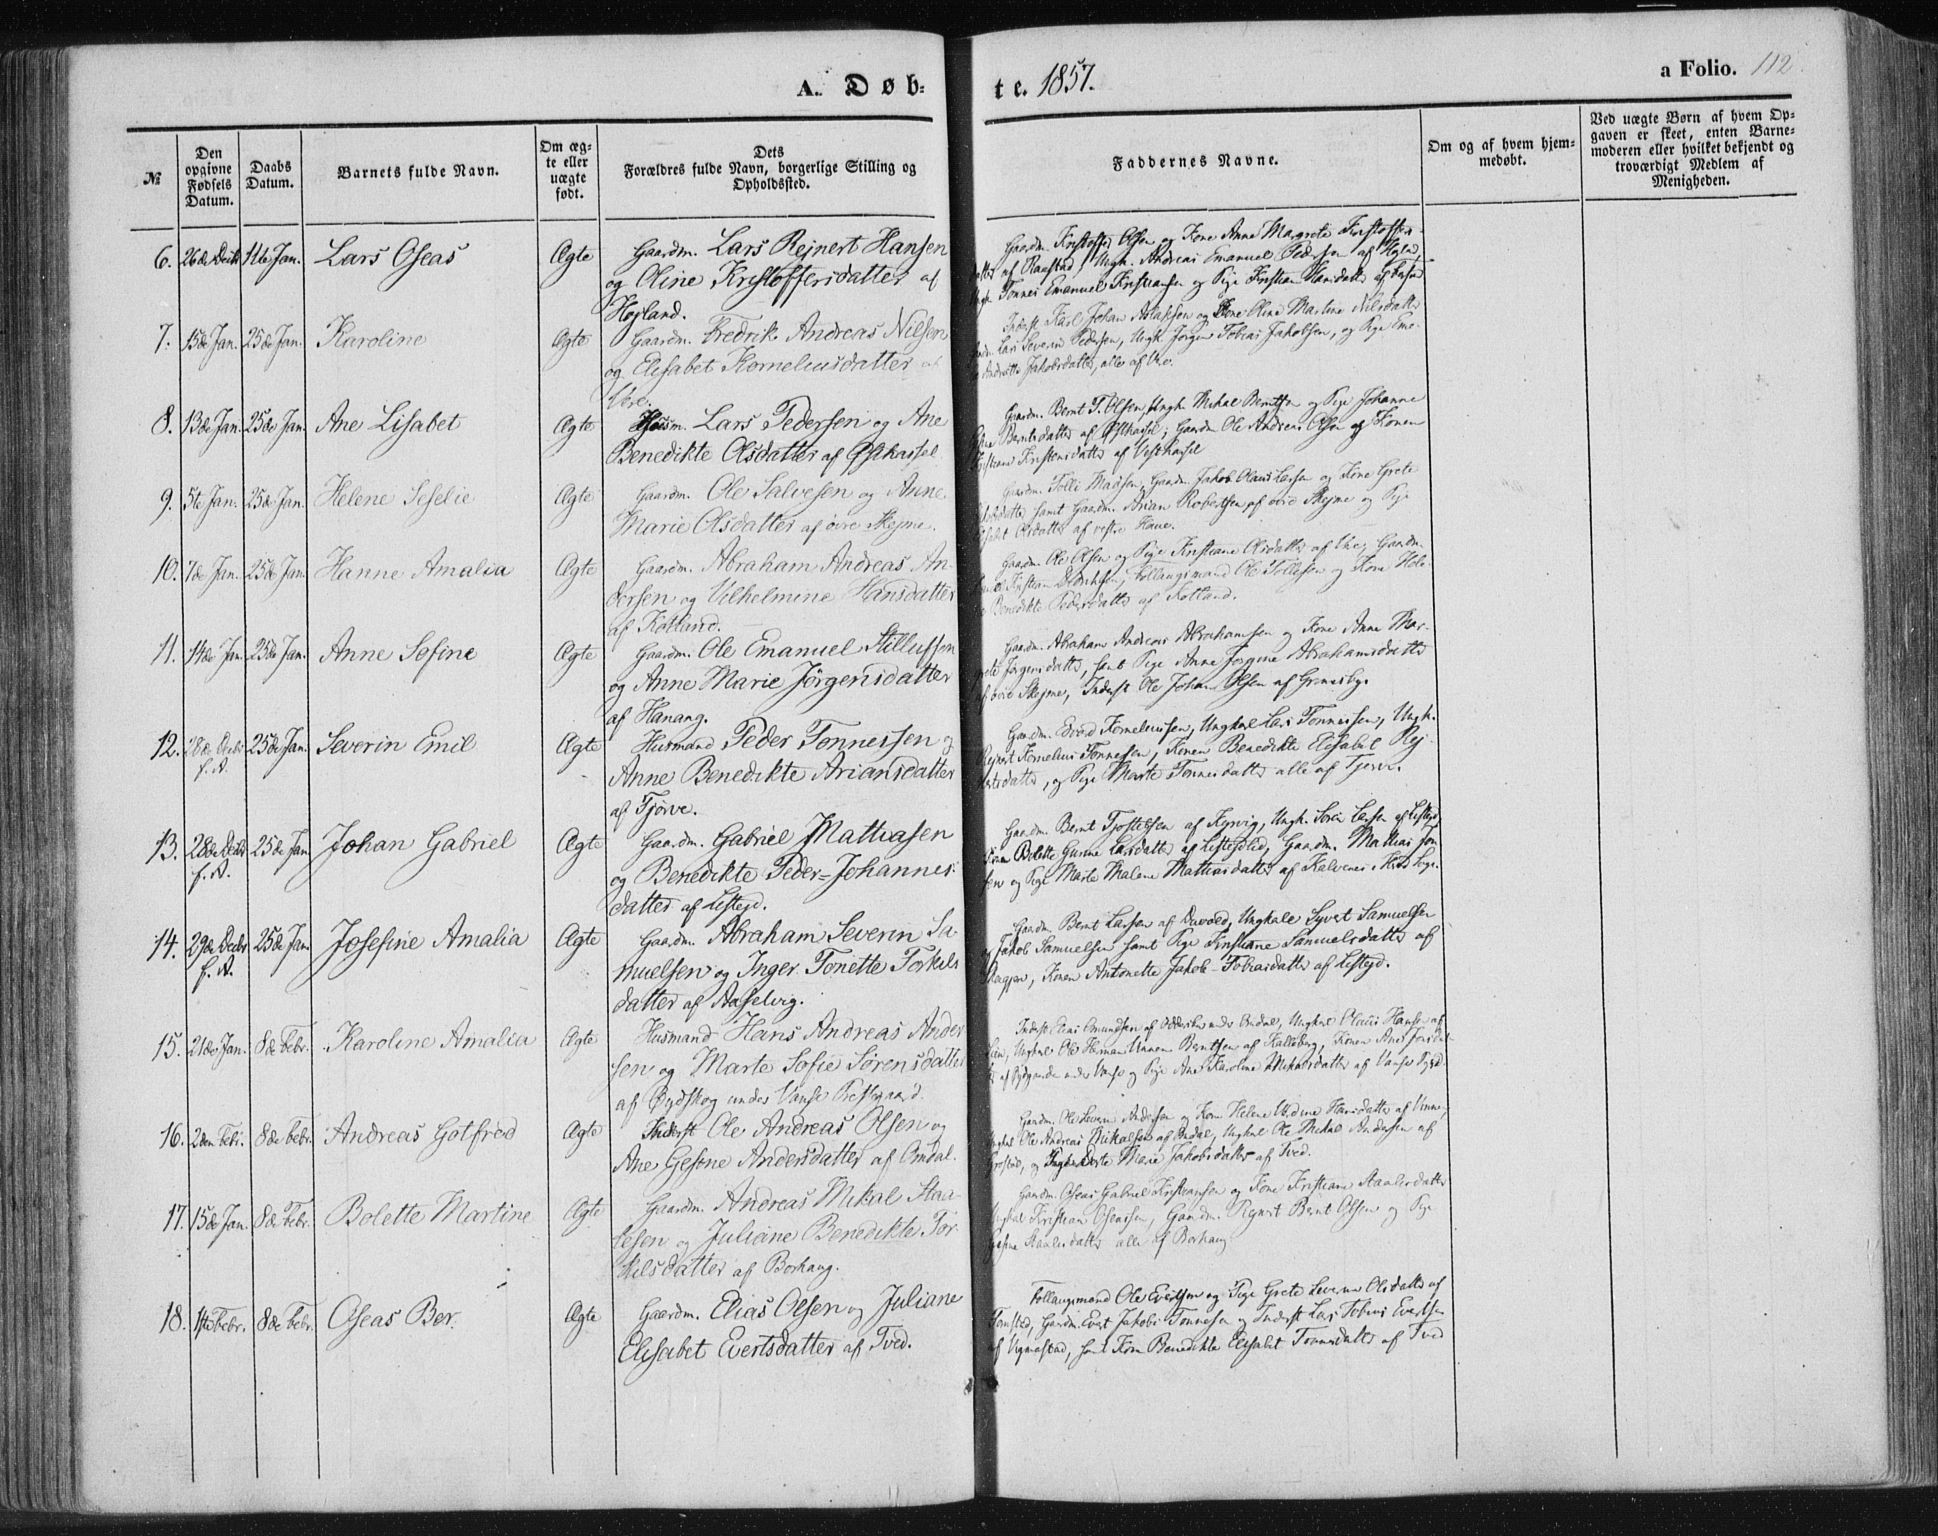 A. Døb-
te. 1857.
a Folio. 112
№
Den opgivne Fødsels Datum.
Daabs Datum.
Barnets fulde Navn.
Om ægte eller uægte født.
Dets Forældres fulde Navn, borgerlige Stilling og Opholdssted.
Faddernes Navne.
Om og af hvem hjemmedøbt.
Ved uægte Børn af hvem Opgaven er skeet, enten Barnemoderen eller hvilket bekjendt og troværdigt Medlem af Menigheden.
6. 26de Decbr 11te Jan. Lars Oseas Ægte Gaardm. Lars Rejnert Hansen
og Oline Kristoffersdatter af
Højland.
Gaardm. Kristoffer Olsen og Kone Anne Margrete Kristoffers-
datter af Raustad, Ungk. Andreas Emanuel Pedersen af
Ungk. Tønnes Emanuel Kristiansen og Pige Kristian Hansdatter af
7. 15de Jan. 25de Jan. Karoline Ægte Gaardm. Fredrik Andreas Nilsen
og Elisabet Korneliusdatter af
Vere.
Inderst Karl Johan Aslaksen og Kone Oline Martine Nilsdatter
Lars Severin Pedersen, Ungk. Jørgen Tobias Jakobsen, og Pige
Andrette Jakobsdatter, alle af Vere.
8. 13de Jan. 25de Jan. Ane Lisabet Ægte Husm. Lars Pedersen og Ane
Benedikte Olsdatter af Østhassel
Gaardm. Bernt T. Olsen, Ungk. Mikal Berntsen og Pige Johanne
Berntsdatter af Østhassel; Gaardm. Ole Andreas Olsen og Konen
Kristiane Kristensdatter af Vesthassel
9. 5te Jan. 25de Jan. Helene Seselie Ægte Gaardm. Ole Salvesen og Anne
Marie Olsdatter af øvre Skejme.
Gaardm. Tolli Madsen, Gaardm. Jakob Olaus Larsen og Kone Grete
samt Gaardm. Arian Robertsen af øvre Skejme og Pige
Olsdatter af vestre Haue.
10. 7de Jan. 25de Jan. Hanne Amalia Ægte Gaardm. Abraham Andreas An-
dersen og Vilhelmine Hansdatter
af Kotland.
Gaardm. Ole Olsen og Pige Kristiane Olsdatter af Vere; Gaardm.
Kristian Didriksen, Follaugsmand Ole Tollefsen og Kone Hele-
ne Benedikte Pedersdatter af Kotland.
11. 14de Jan. 25de Jan. Anne Sofine Ægte Gaardm. Ole Emanuel Stillufsen
og Anne Marie Jørgensdatter
af Hanang.
Gaardm. Abraham Andreas Abrahamsen og Kone Anne Mar-
grete Jørgensdatter, samt Pige Anne Jørgine Abrahamsdatter
af øvre Skejme, Inderst Ole Johan Olsen af Grimsby.
12. 28de Decbr f. A. 25de Jan. Severin Emil Ægte Husmand Peder Tønnessen og
Anne Benedikte Ariansdatter
af Tjørve.
Gaardm. Evard Korneliusen, Ungkal Lars Tønnessen, Ungk.
Rejnert Kornelius Tønnessen, Konen Benedikte Elisabet Rej-
nertsdatter, og Pige Marte Tønnesdatter alle af Tjørve.
13. 28de Decbr f. A. 25de Jan. Johan Gabriel Ægte Gaardm. Gabriel Mattiasen
og Benedikte Peder-Johannes-
datter af Listejd.
Gaardm. Bernt Tjøstelsen af Rejvig, Ungk. Soren Larsen af Listejd,
Bolette Gurine Larsdatter af Listejdlid, Gaardm. Mathias Jon-
sen og Pige Marte Malene Mattiasdatter af
14. 29de Decbr f. A. 25de Jan. Josefine Amalia Ægte Gaardm. Abraham Severin Sa-
muelsen og Inger Tonette Torkils-
datter af Aaselvig.
Gaardm. Bernt Larsen af Duvold, Ungkale Syvert Samuelsen
og Jakob Samuelsen samt Pige Kristiane Samuelsdatter af
Konen Antonette Jakob-Tobiasdatter af Listejd.
15. 21de Jan. 8de Febr. Karoline Amalia Ægte Husmand Hans Andreas Ander-
sen og Marte Sofie Sørensdatter
af Øydskog under Vanse Prestegaard.
Inderst Elias Omundsen af under Omdal, Ungkal Olaus Hansen af
Ungkal Ole Herman Unnem Berntsen af Kalleberg, Konen Ane Jonsdat-
ter af under Vanse og Pige Ane Karoline Mikalsdatter af Vanse
16. 2den Febr. 8de Febr. Andreas Gotfred Ægte Inderst Ole Andreas Olsen og
Ane Gesine Andersdatter af Omdal.
Gaardm. Ole Severin Andersen og Kone Helene Hansdatter af
Ungkal Ole Andreas Mikalsen af Omdal, Ungkal Ole Mikal Andersen af
og Marie Jakobsdatter af Tved.
17. 15de Jan. 8de Febr. Bolette Martine Ægte Gaardm. Andreas Mikal Staa-
lesen og Juliane Benedikte Tor-
kilsdatter af Borhaug.
Gaardm. Oseas Gabriel Kristiansen og Kone Kristiane Staalesdatter
Ungkal Kristian Osenisen, Gaardm. Rejnert Bernt Olsen og Pige
Gesine Staalesdatter alle af Borhaug
18. 1ste Febr. 8de Febr. Oseas Ber. Ægte Gaardm. Elias Olsen og Juliane
Elisabet Evertsdatter af Tved.
Follaugsmand Ole Evertsen og Pige Grete Severine Olsdatter af
Gaardm. Evert Jakobi Tønnesen og Inderst Lars Tobias Evertsen
af Vigmostad, samt Kone Benedikte Elisabet Tønnesdatter af Tved